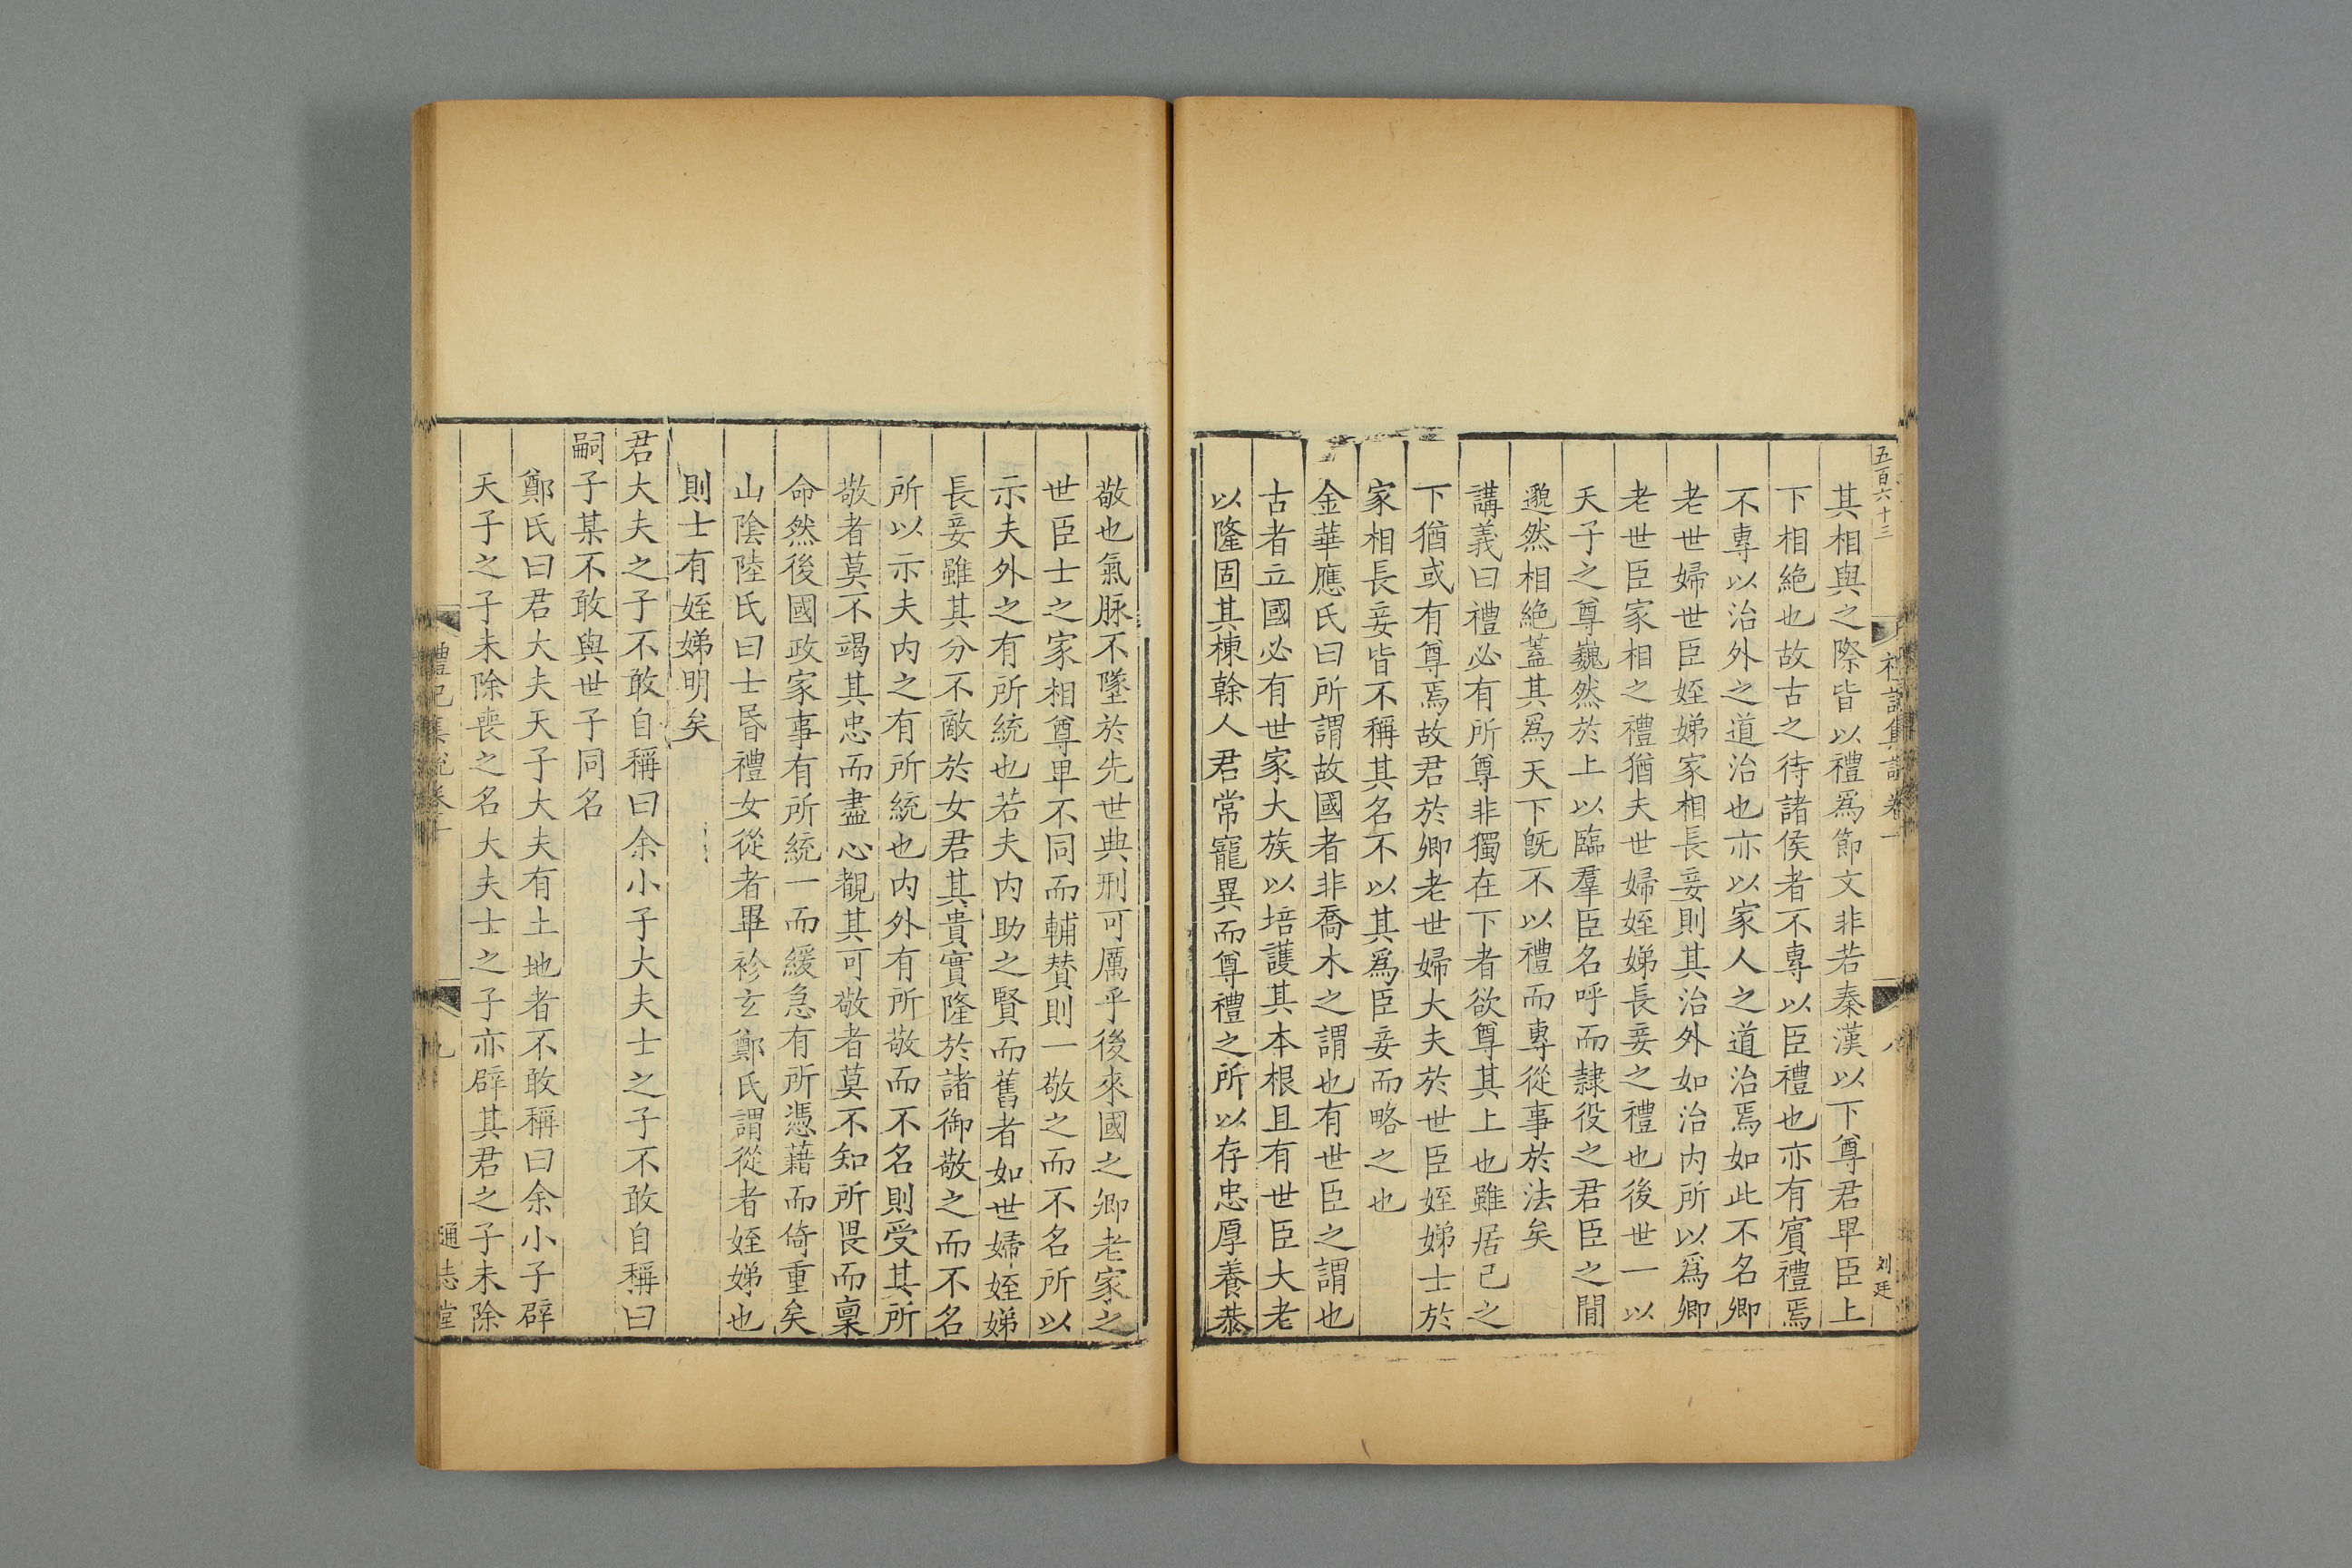 五百六十三
八
刘廷
其相與之際皆以禮爲節文非若秦漢以下尊君卑臣上
下相絶也故古之待諸侯者不專以臣禮也亦有賓禮焉
不專以治外之道治也亦以家人之道治焉如此不名卿
老世婦世臣姪娣家相長妾則其治外如治内所以爲卿
老世臣家相之禮猶夫世婦姪娣長妾之禮也後世一以
天子之尊巍然於上以臨羣臣名呼而隷役之君臣之間
邈然相絶蓋其爲天下旣不以禮而專從事於法矣
講義曰禮必有所尊非獨在下者欲尊其上也雖居己之
下猶或有尊焉故君於卿老世婦大夫於世臣姪娣士於
家相長妾皆不稱其名不以其爲臣妾而略之也
金華應氏曰所謂故國者非喬木之謂也有世臣之謂也
古者立國必有世家大族以培護其本根且有世臣大老
以隆固其棟榦人君常寵異而尊禮之所以存忠厚養恭
敬也氣脉不墜於先世典刑可厲乎後來國之卿老家之
世臣士之家相尊卑不同而輔賛則一敬之而不名所以
示夫外之有所統也若夫内助之賢而舊者如世婦姪娣
長妾雖其分不敵於女君其貴實隆於諸御敬之而不名
所以示夫内之有所統也内外有所敬而不名則受其所
敬者莫不竭其忠而盡心覩其可敬者莫不知所畏而稟
命然後國政家事有所統一而緩急有所憑藉而倚重矣
山陰陸氏曰士昏禮女從者畢袗玄鄭氏謂從者姪娣也
則士有姪娣明矣
君大夫之子不敢自稱曰余小子大夫士之子不敢自稱曰
嗣子某不敢與世子同名
鄭氏曰君大夫天子大夫有土地者不敢稱曰余小子辟
天子之子未除喪之名大夫士之子亦辟其君之子未除
禮記集説卷十
九
通志堂